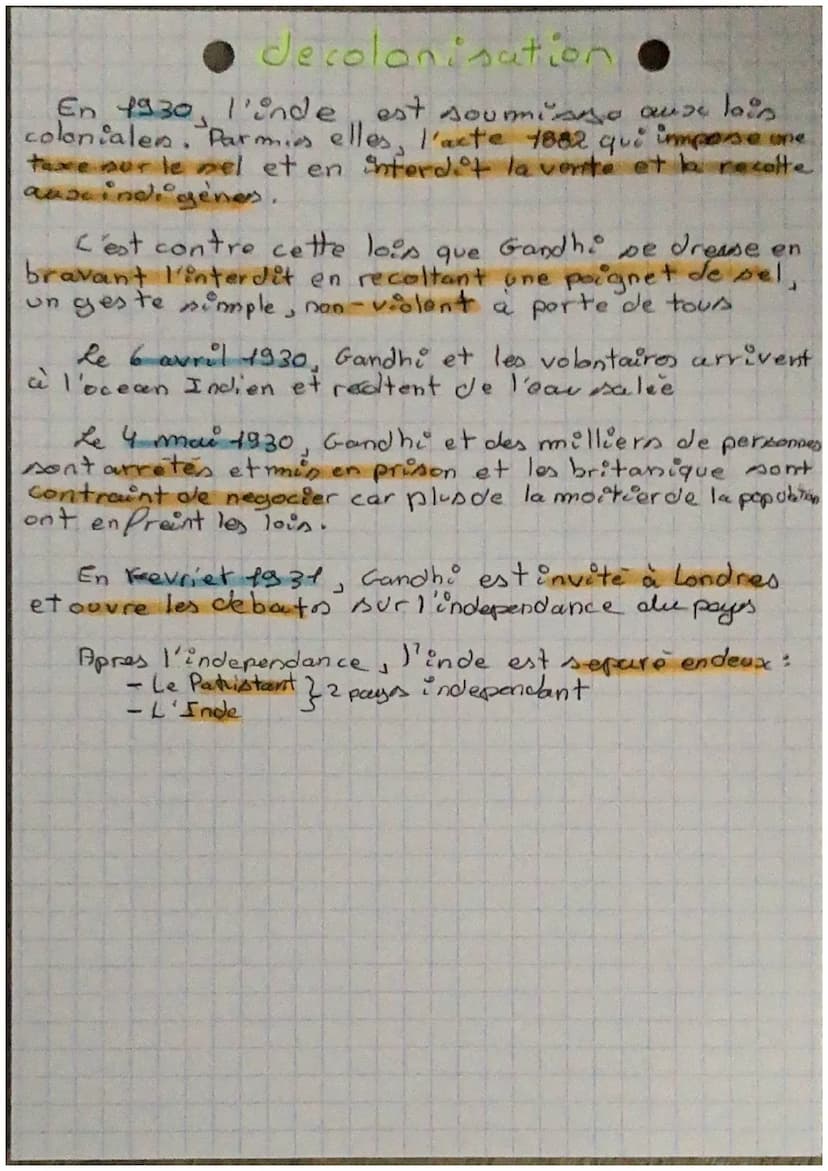 decolonisation
En 1930, l'inde est soumisse aux lois
coloniales. Parmis elles, l'acte 1882 qui impose une
taxe sur le sel et en interdit la vente et la recolte
aux indigènes.
C'est contre cette lois que Gandhi se dresse en
bravant l'interdit en recoltant une poignet de sel,
un geste simple, non-violent à porte de tous
Le 6 avril 1930, Gandhi et les volontaires arrivent
à l'ocean Indien et recltent de l'eau salée
Le 4 mai 1930, Gandhi et des milliers de personnes
sont arretés et mis en prison et les britanique sont
contraint de negocier car plus de la moitier de la popolation
ont enfreint les lois.
En Fevriet 1931, Gandhi est invité à Londres
et ouvre les debats sur l'independance du pays
Apres l'independance, l'inde est separé en deux :
- Le Pakistant } 2 pays independant
- L'Inde